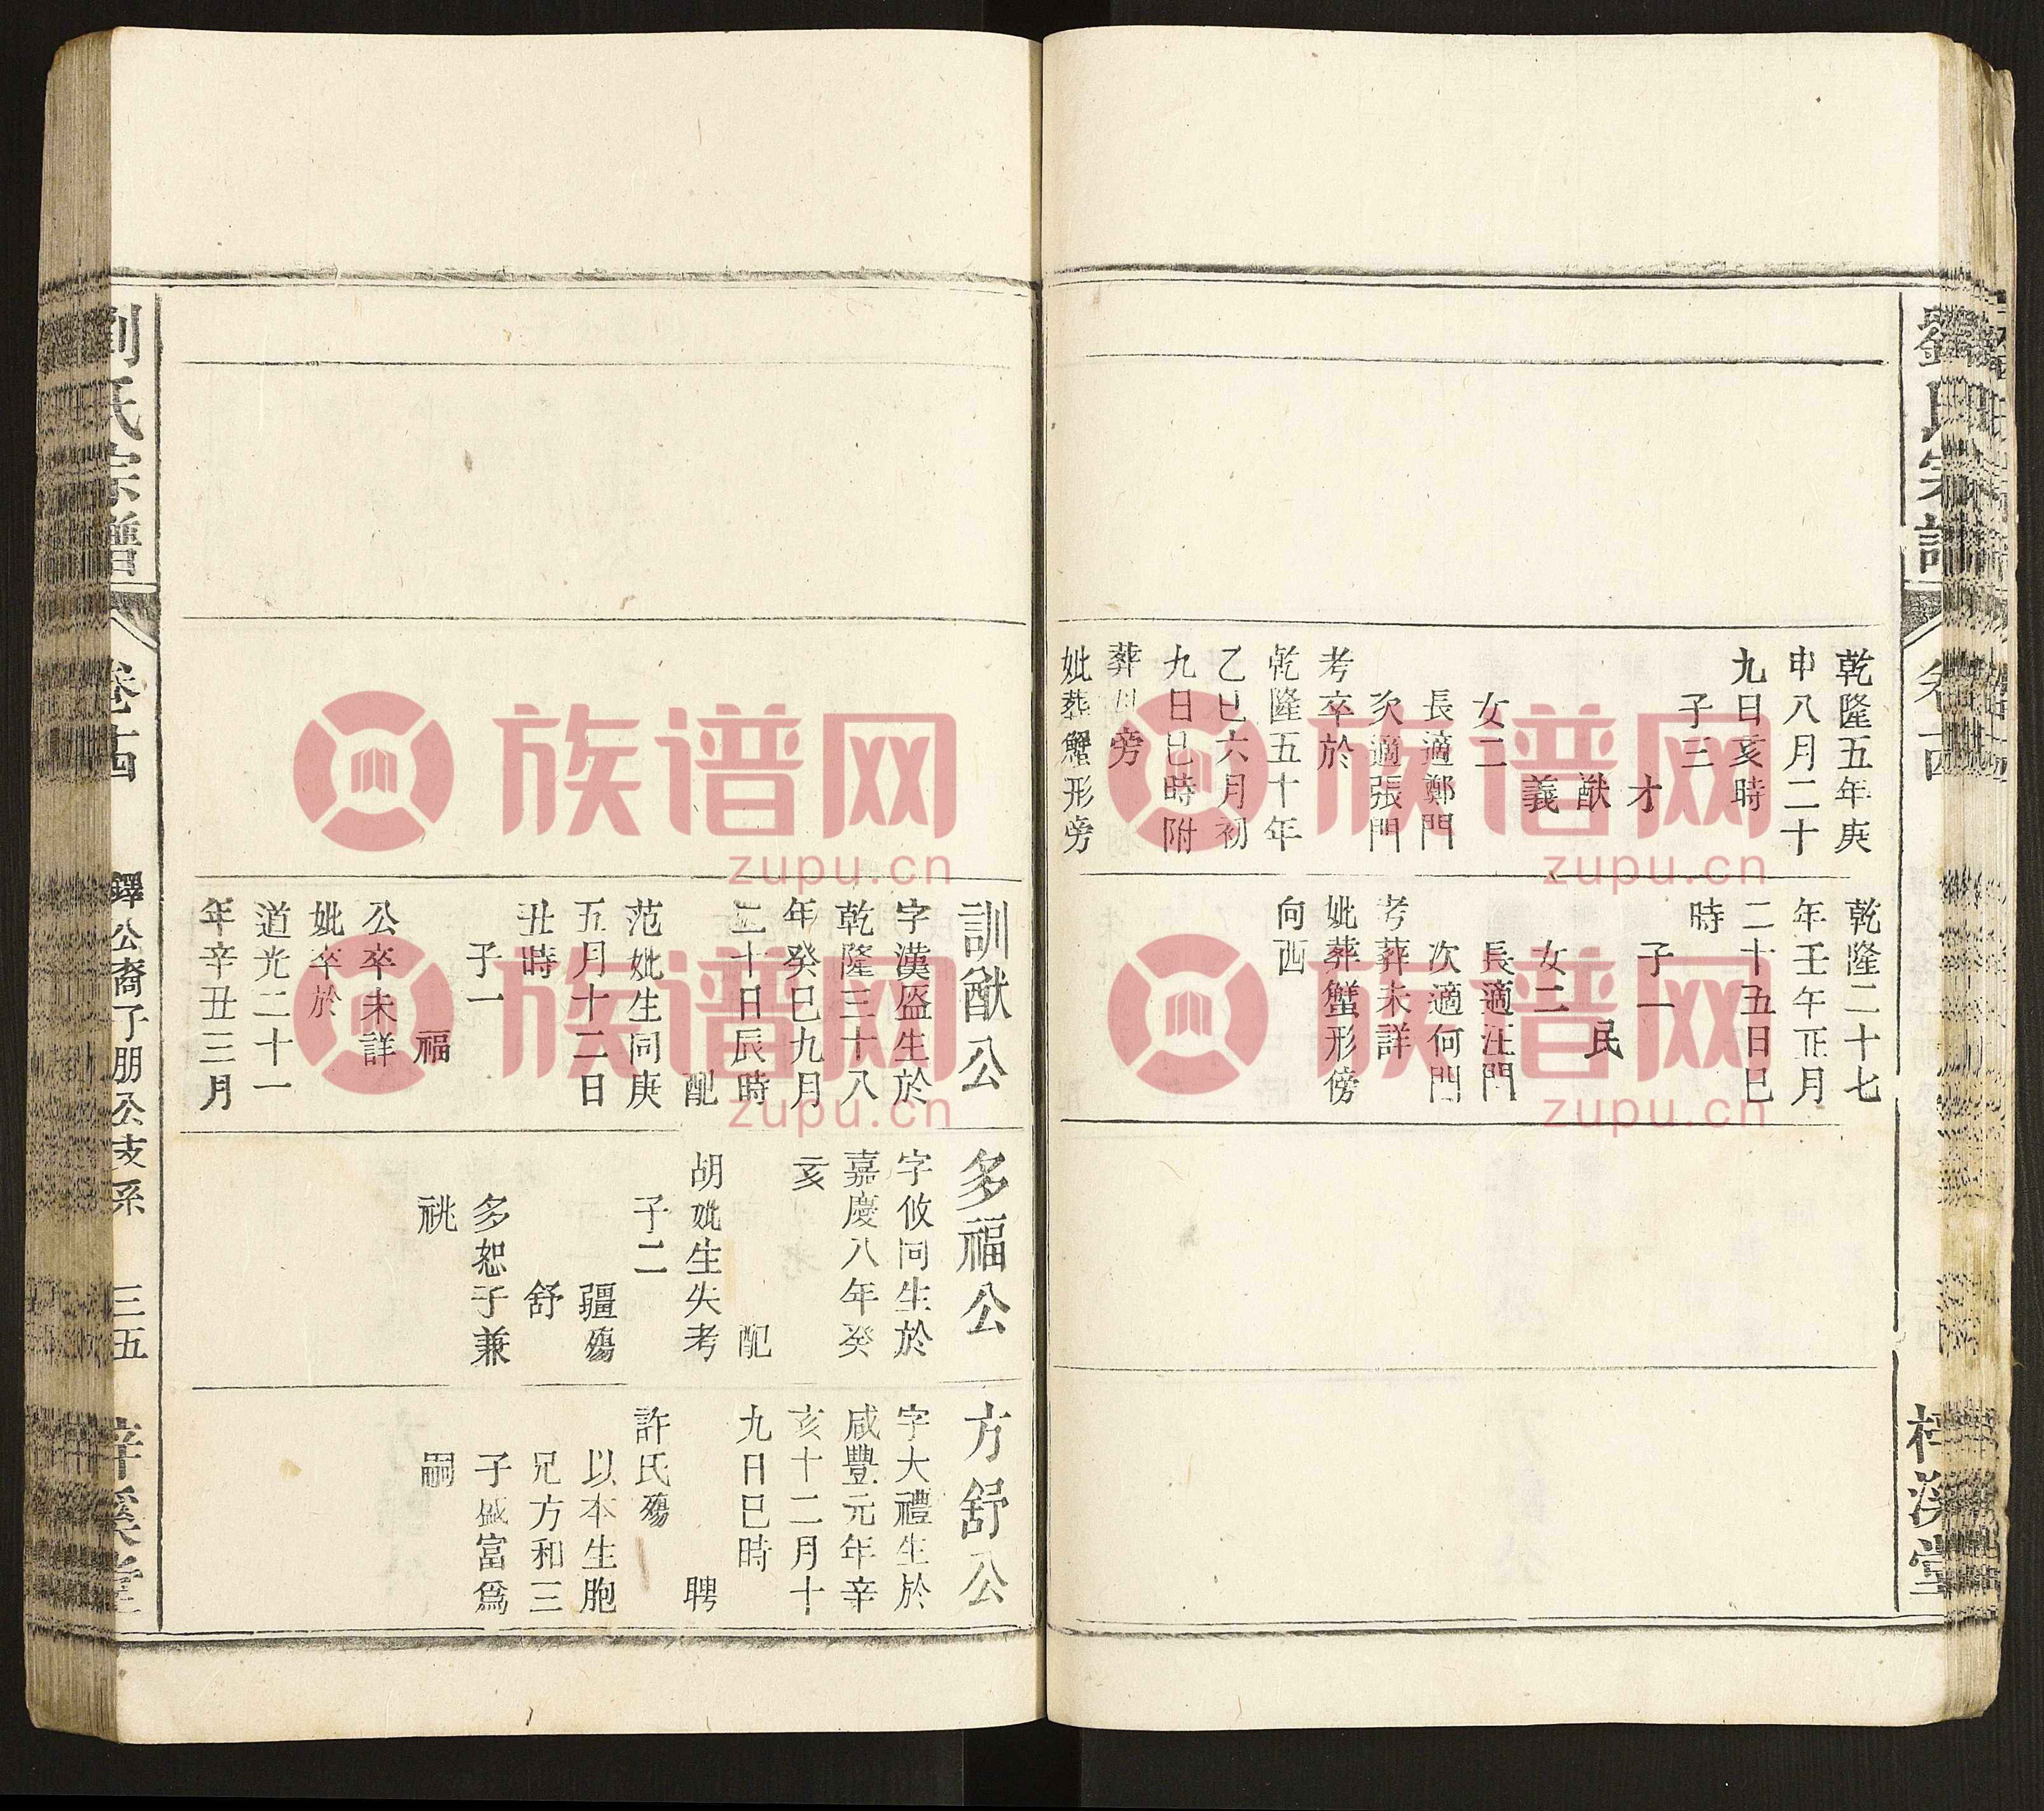 劉氏宗譜
卷十四
梓溪堂
乾隆五年庚
申八月二十
九日亥時
子三
才
猷
義
女二
長適鄭門
次適張門
考卒於
乾隆五十年
乙巳六月初
九日巳時附
葬 旁
妣葬蟹形旁
乾隆二十七
年壬午正月
二十五日巳
時
子一
民
女二
長適汪門
次適何門
考葬未詳
妣葬蟹形傍
向西
訓猷公
字漢盛生於
乾隆三十八
年癸巳九月
二十日辰時
配
范妣生同庚
五月十二日
丑時
子一
福
公卒未詳
妣卒於
道光二十一
年辛丑三月
多福公
字攸同生於
嘉慶八年癸
亥
配
胡妣生失考
子二
疆殤
舒
多恕子兼
祧
方舒公
字大禮生於
咸豐元年辛
亥十二月十
九日巳時
聘
許氏殤
以本生胞
兄方和三
子盛富為
嗣
劉氏宗譜
卷十四
鐸公裔子朋公支系
三五
梓溪堂
族谱网
zupu.cn
族谱网
zupu.cn
族谱网
zupu.cn
族谱网
zupu.cn